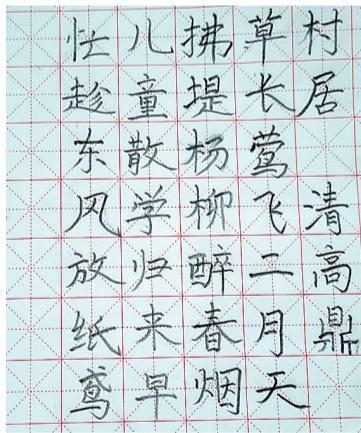 村居
清高鼎
草长莺飞二月天
拂堤杨柳醉春烟
儿童散学归来早
忙趁东风放纸鸢